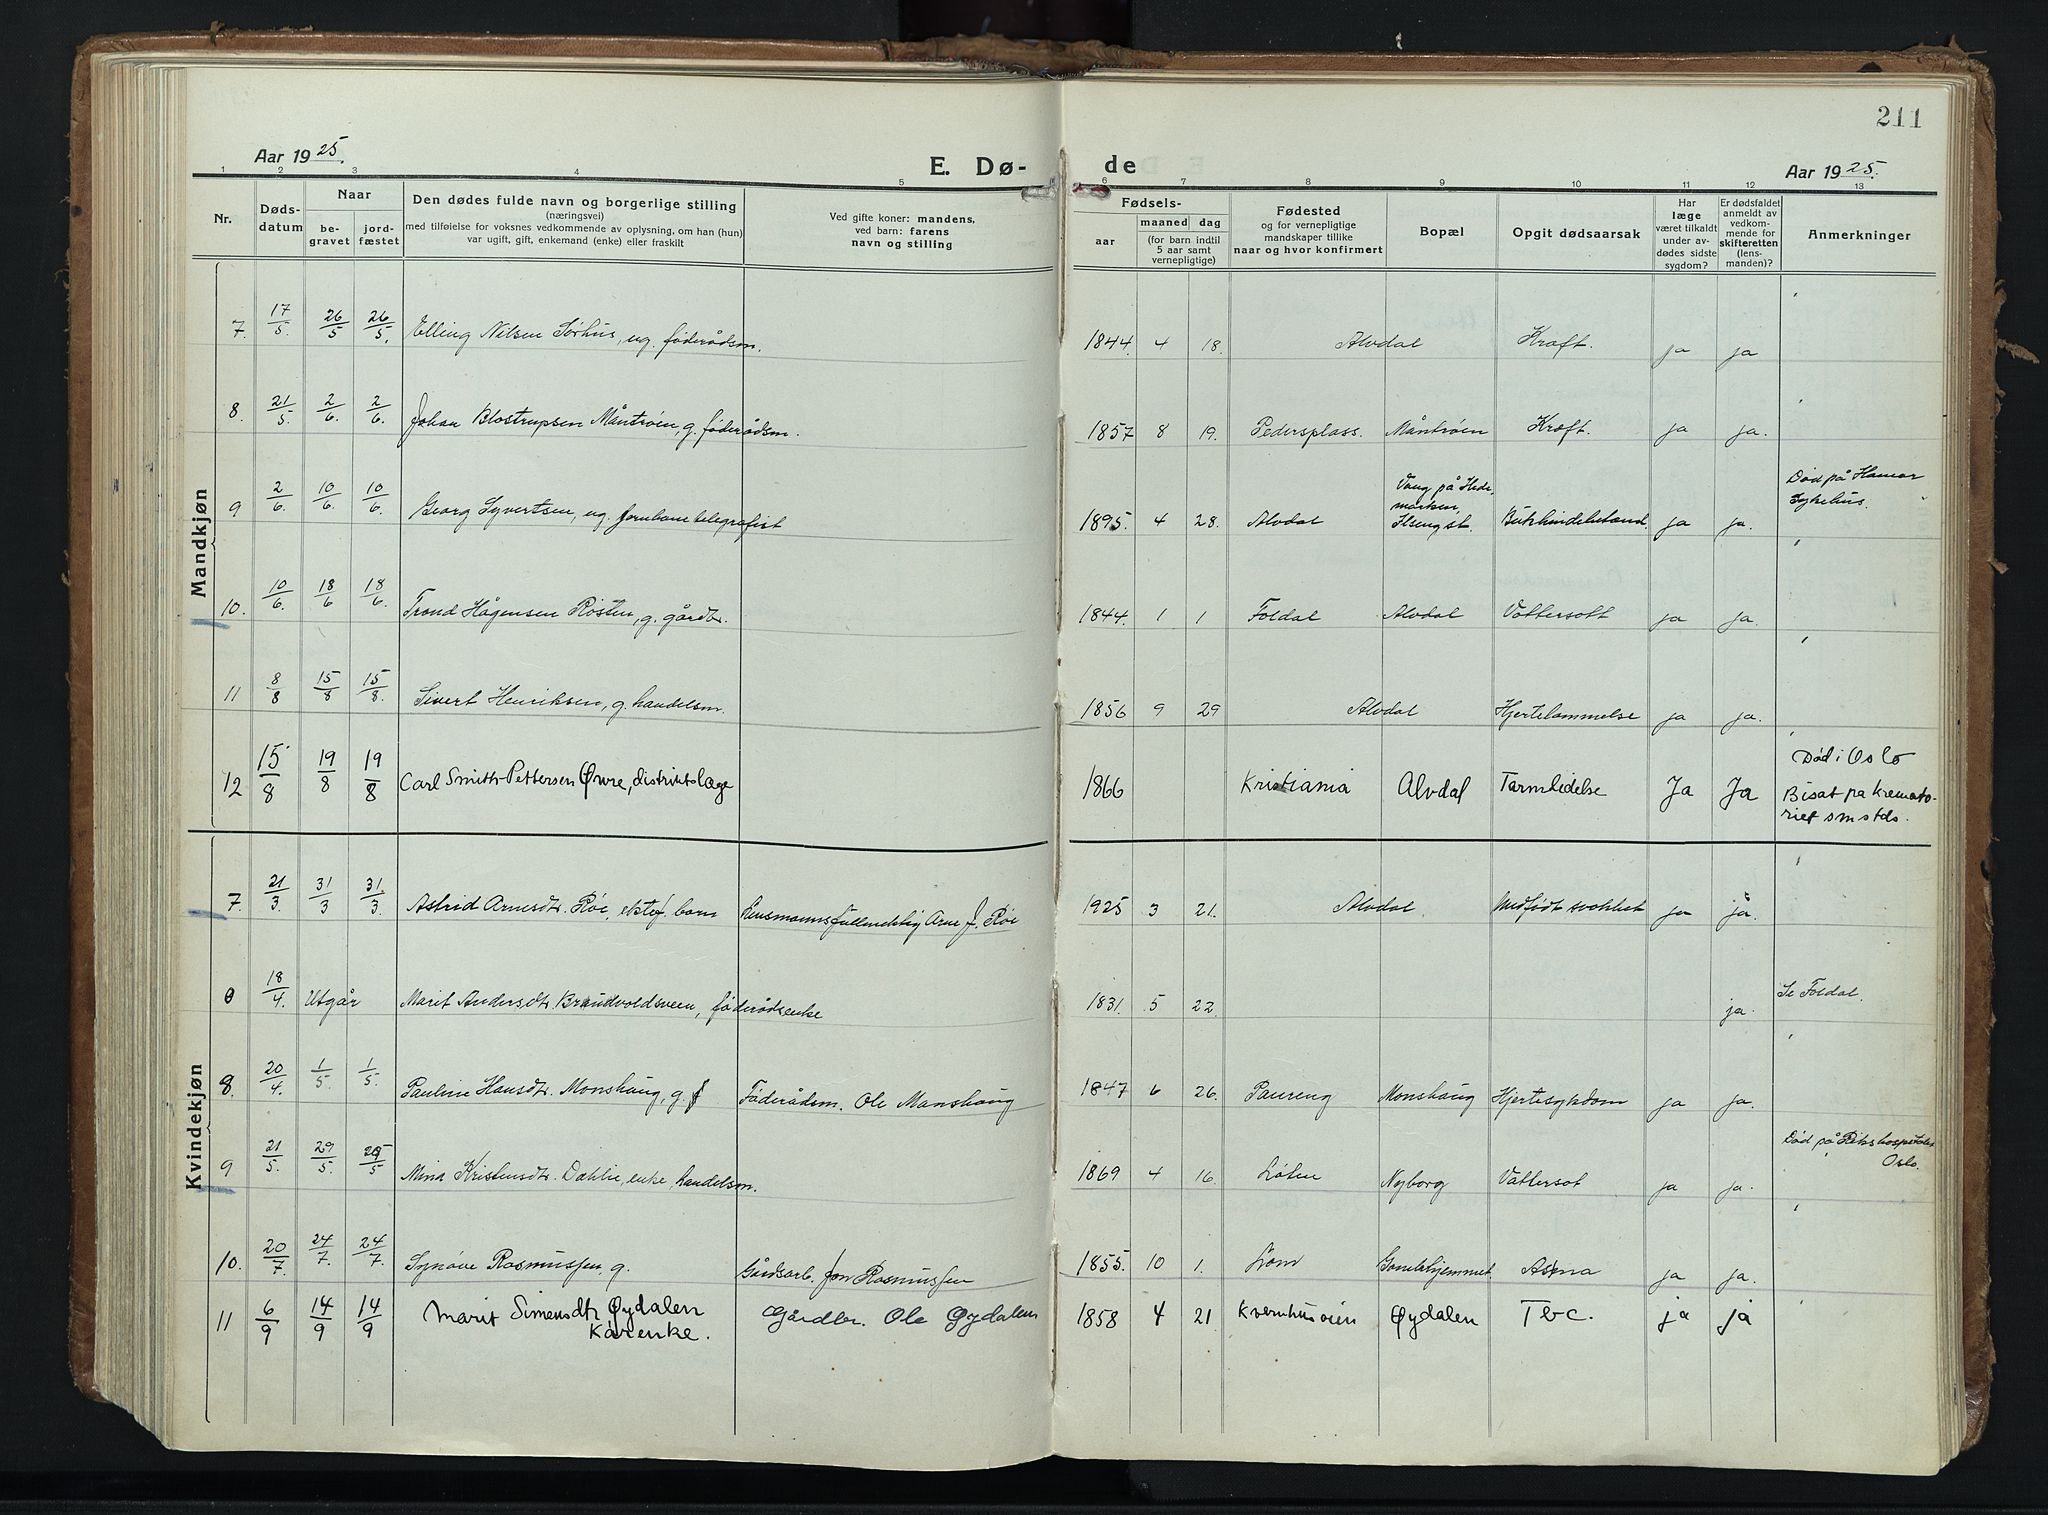 211
Aar 1925.
E. Dø-
de
Aar 1925.
1 2 3 4 5 6 7 8 9 10 11 12 13
Nr.
Døds-
datum
Naar
be-
gravet
jord-
fæstet
Den dødes fulde navn og borgerlige stilling
(næringsvei)
med tilføielse for voksnes vedkommende av oplysning, om han (hun)
var ugift, gift, enkemand (enke) eller fraskilt
Ved gifte koner: mandens,
ved barn: farens
navn og stilling
Fødsels-
aar
maaned
dag
(for barn indtil
5 aar samt
vernepligtige)
Fødested
og for vernepligtige
mandskaper tillike
naar og hvor konfirmert
Bopæl
Opgit dødsaarsak
Har
læge
været tilkaldt
under av-
dødes sidste
sygdom?
Er dødsfaldet
anmeldt av
vedkom-
mende for
skifteretten
(lens-
manden)?
Anmerkninger
Mandkjøn
7. 17/5. 26/5 26/5. Elling Nilsen Sørhus, ug. føderådsm. 1844. 4 18. Alvdal Kræft. ja ja
8. 21/5. 2/6. 2/6. Johan Blostrupsen Måntrøen, g. føderådsm. 1857 8 19. Pedersplass. Måntrøen Kræft. ja ja.
9 2/6. 10/6. 10/6. Georg Syvertsen, ug. jernbanetelegrafist 1895. 4 28. Alvdal Vang på Hede-
marken,
Ilseng st. ja ja. Død på Hamar
Sykehus.
10. 10/6. 18/6 18/6. Trond Hågensen Røsten, g. gårdbr. 1844. 1 1 Foldal Alvdal Vattersott ja ja.
11 8/8 15/8 15/8. Sivert Henriksen, g. handelsm. 1856 9 29 Alvdal Hjertelammelse ja ja.
12 15/8 19/8 19/8 Carl Smith-Pettersen Øvre, distriktslæge 1866 Kristiania Alvdal Tarmlidelse Ja Ja Død i Oslo
Bisat på kremato-
riet smstds.
Kvindekjøn
7. 21/3 31/3 31/3 Astrid Arnesdtr. Røe, ektef. barn Lensmannsfullmektig Arne J. Røe 1925 3 21. Alvdal. Medfødt svakhet ja ja.
0 18/4. Utgår Marit Andersdtr. Brandvoldsveen, føderådsenke 1831. 5 22. ja. Se Foldal.
8. 20/4. 1/5. 1/5. Pauline Hansdtr. Monshaug, g. Føderådsm. Ole Monshaug 1847 6 26. Paureng Monshaug Hjertesykdom ja ja.
9 21/5. 29/5. 29/5 Mina Kristensdtr. Dæhlie, enke, handelsm. 1869 4 16. Løten Nyborg Vattersot ja ja. Død på Rikshospitalet
Oslo.
10. 20/7. 24/7. 24/7. Synøve Rasmussen, g. Gårdsarb. Jon Rasmussen 1855. 10 1. Lom Gamlehjemmet Asma ja ja.
11 6/9 14/9 14/9 Marit Simensdtr Øydalen
Kårenke. Gårdbr. Ole Øydalen 1858 4 21 Kvernhusveien Øydalen Tbc. ja ja